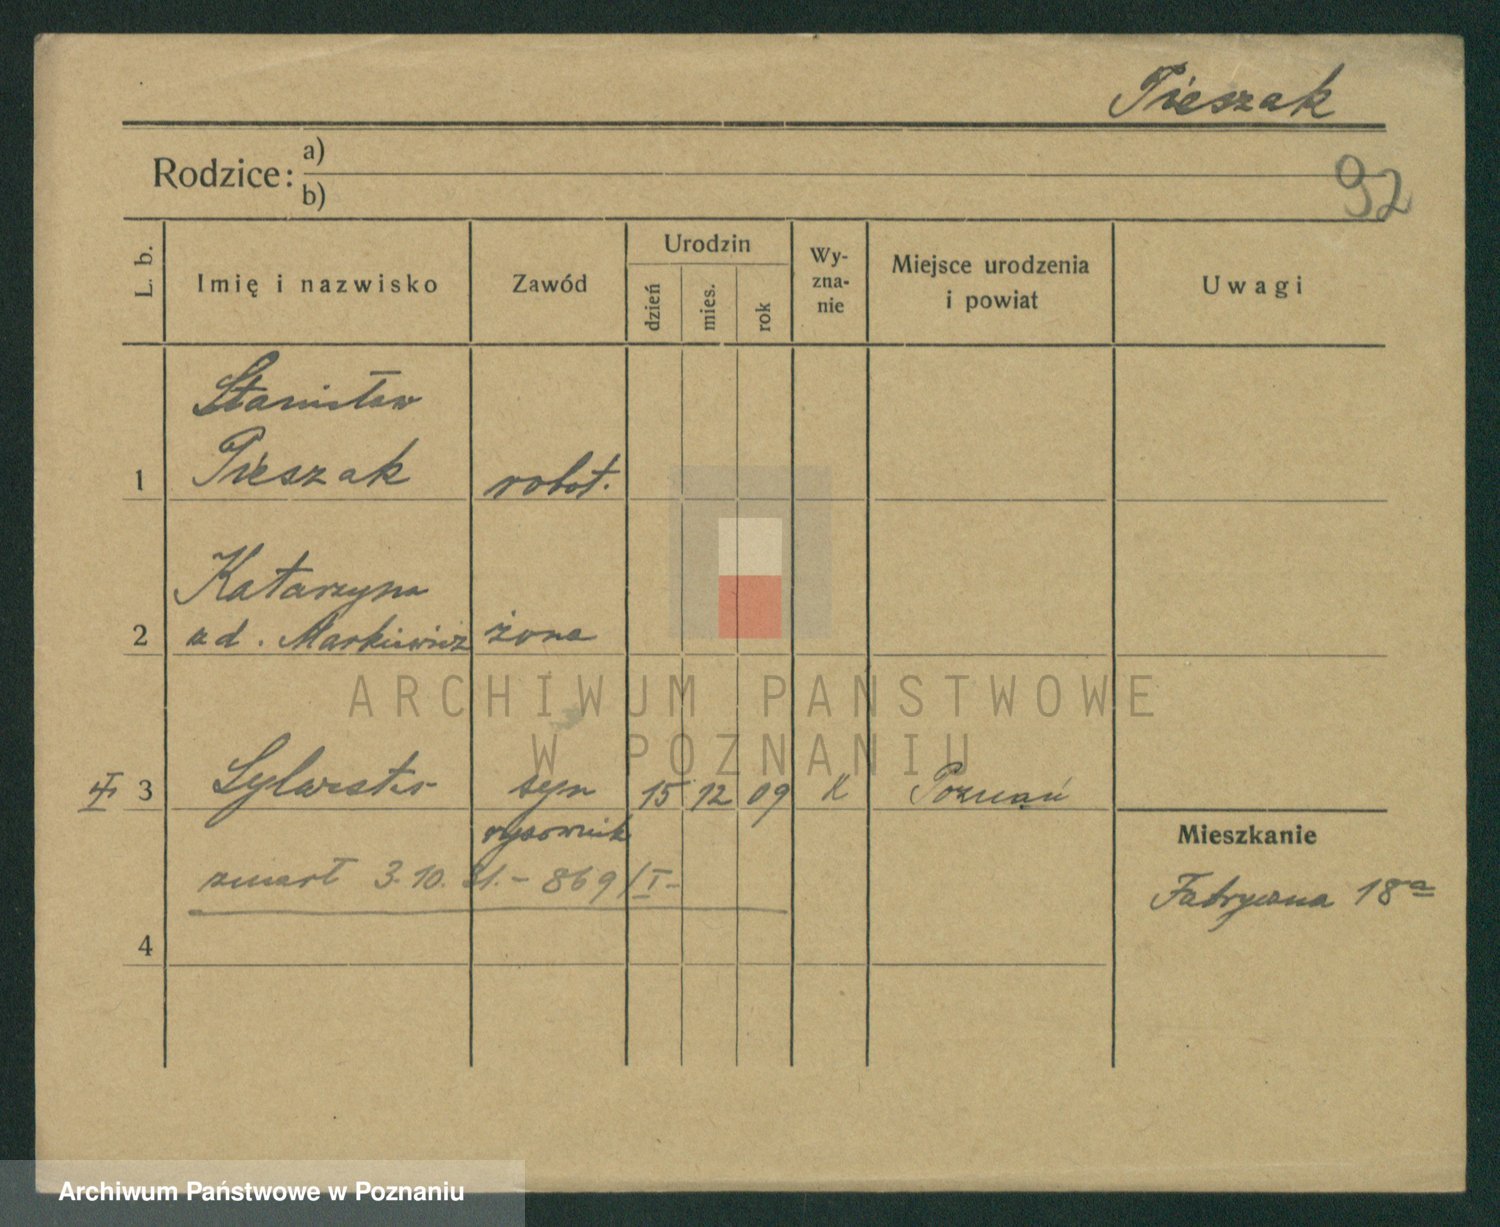 Pieszak
Rodzice: a)
b)
92
L. b.
Imię i nazwisko
Zawód
Urodzin
dzień
mies.
rok
Wy-
zna-
nie
Miejsce urodzenia
i powiat
Uwagi
Stanisław
1 Pieszak robot.
Katarzyna
2 z d. Markiewicz żona
3 Sylwester syn 15 12 09 K Poznań
rysownik
zmarł 3.10.31.- 869/I-
4
Mieszkanie
Fabryczna 18a
ARCHIWUM PANSTWOWE
W POZNANIU
Archiwum Państwowe w Poznaniu